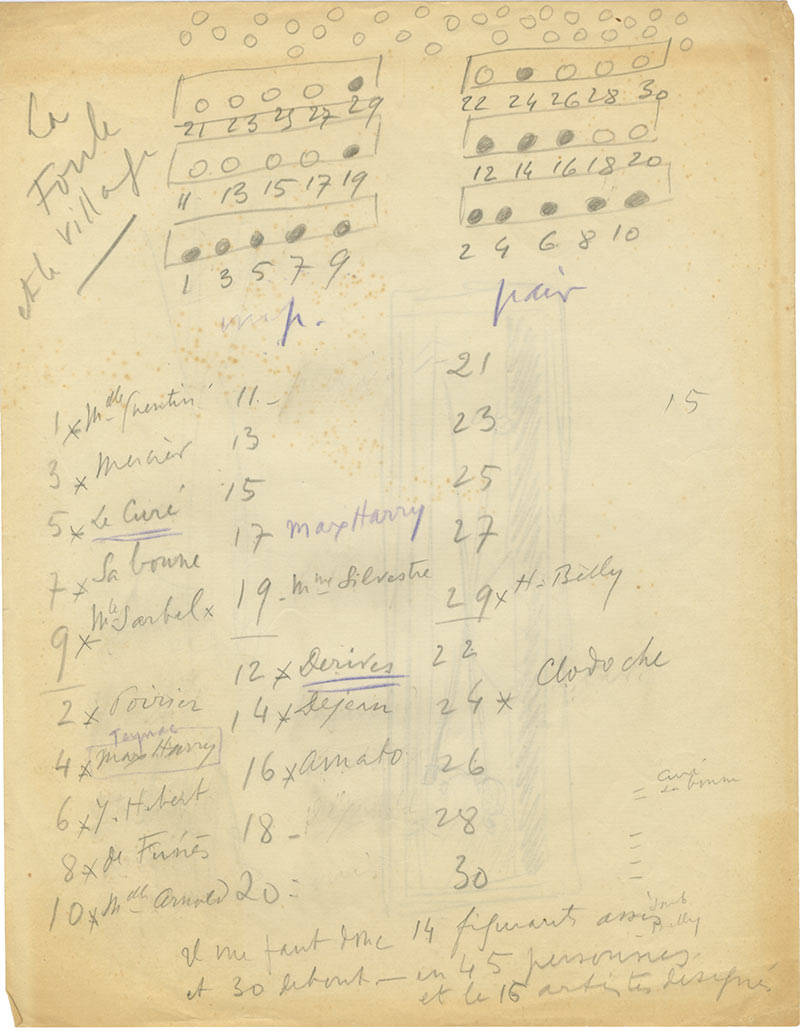 La
Foule
et le village
21 23 25 27 29
11 13 15 17 19
1 3 5 7 9
22 24 26 28 30
12 14 16 18 20
2 4 6 8 10
imp.
pair
1 x Mdlle Quentin
3 x Mercier
5 x Le Curé
7 x Sa bonne
9 x Mlle Sarbel x
2 x Poirier
Teynac
4 x Max Harry
6 x Y. Hébert
8 x de Funès
10 x Mdlle Arnold
11 -
13
15
17 Max Harry
19 - Mme Silvestre
12 x Derives
14 x Dejean
16 x Amato
18 -
20 -
21
23
25
27
29 x H. Billy
22
24 x Clodoche
26
28
30
15
curé
sa bonne
Billy
Il me faut donc 14 figurants assis
et 30 debout - en 45 personnes
et le 15 artistes designés